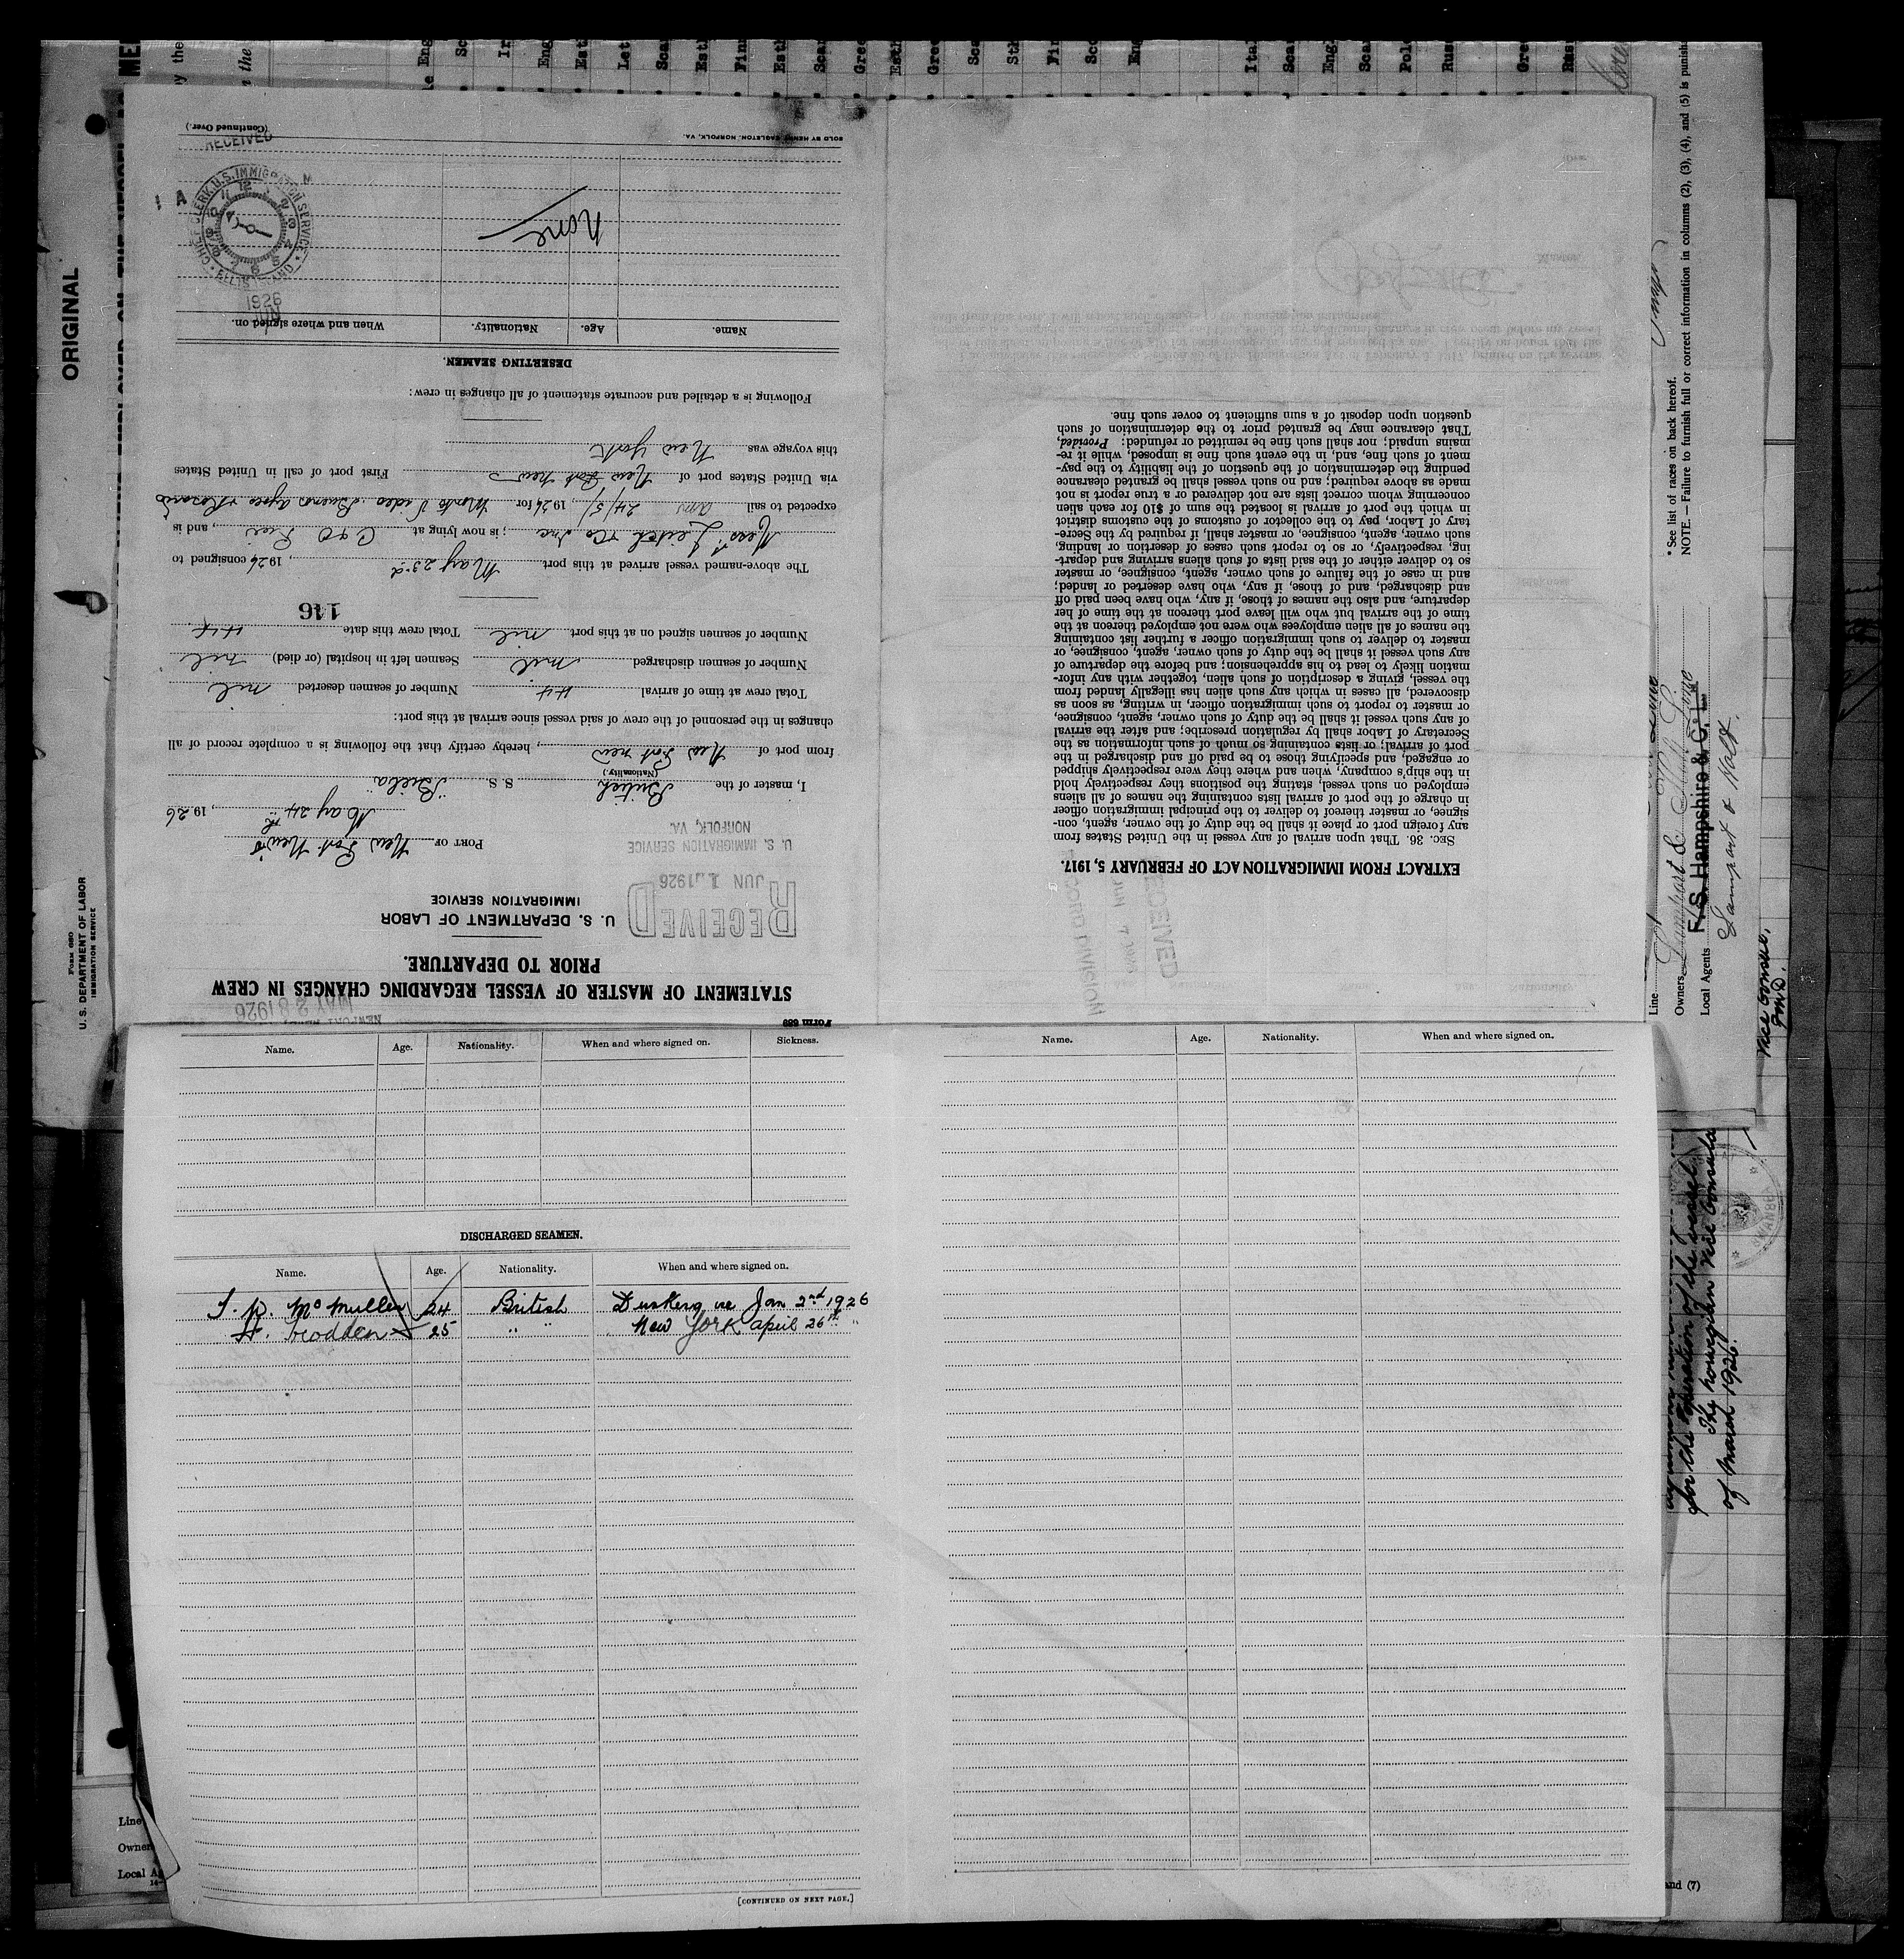 Form 689
STATEMENT OF MASTER OF VESSEL REGARDING CHANGES IN CREW
PRIOR TO DEPARTURE.
U. S. DEPARTMENT OF LABOR
IMMIGRATION SERVICE
RECEIVED
JUN 1 1926
U. S. IMMIGRATION SERVICE
NORFOLK, VA.
PORT OF New Port News
May 24th, 1926
I, master of the British S. S. "Biela"
(Nationality.)
from port of New Port News, hereby certify that the following is a complete record of all
changes in the personnel of the crew of said vessel since arrival at this port:
Total crew at time of arrival 44 Number of seamen deserted nil
Number of seamen discharged nil Seamen left in hospital (or died) nil
Number of seamen signed on at this port nil Total crew this date 44
146
The above-named vessel arrived at this port May 23rd, 1926 consigned to
Messrs Leitch & Co Inc; is now lying at C & O Pier, and is
expected to sail am 24/5/, 1926 for Monte Video Buenos Ayres & Rosario
via United States port of New Port News First port of call in United States
this voyage was New York
Following is a detailed and accurate statement of all changes in crew:
DESERTING SEAMEN.
Name. Age. Nationality. When and where signed on.
None
CHIEF CLERK U.S. IMMIGRATION SERVICE
ELLIS ISLAND
1926
RECEIVED
SOLD BY HENRY EAGLETON, NORFOLK, VA.
(Continued Over.)
EXTRACT FROM IMMIGRATION ACT OF FEBRUARY 5, 1917.
SEC. 36. That upon arrival of any vessel in the United States from
any foreign port or place it shall be the duty of the owner, agent, con-
signee, or master thereof to deliver to the principal immigration officer
in charge of the port of arrival lists containing the names of all aliens
employed on such vessel, stating the positions they respectively hold
in the ship's company, when and where they were respectively shipped
or engaged, and specifying those to be paid off and discharged in the
port of arrival; or lists containing so much of such information as the
Secretary of Labor shall by regulation prescribe; and after the arrival
of any such vessel it shall be the duty of such owner, agent, consignee,
or master to report to such immigration officer, in writing, as soon as
discovered, all cases in which any such alien has illegally landed from
the vessel, giving a description of such alien, together with any infor-
mation likely to lead to his apprehension; and before the departure of
any such vessel it shall be the duty of such owner, agent, consignee, or
master to deliver to such immigration officer a further list containing
the names of all alien employees who were not employed thereon at the
time of the arrival but who will leave port thereon at the time of her
departure, and also the names of those, if any, who have been paid off
and discharged, and of those, if any, who have deserted or landed;
and in case of the failure of such owner, agent, consignee, or master
so to deliver either of the said lists of such aliens arriving and depart-
ing, respectively, or so to report such cases of desertion or landing,
such owner, agent, consignee, or master shall, if required by the Secre-
tary of Labor, pay to the collector of customs of the customs district
in which the port of arrival is located the sum of $10 for each alien
concerning whom correct lists are not delivered or a true report is not
made as above required; and no such vessel shall be granted clearance
pending the determination of the question of the liability to the pay-
ment of such fine, and, in the event such fine is imposed, while it re-
mains unpaid; nor shall such fine be remitted or refunded: Provided,
That clearance may be granted prior to the determination of such
question upon deposit of a sum sufficient to cover such fine.
Name. Age. Nationality. When and where signed on. Sickness.
DISCHARGED SEAMEN.
Name. Age. Nationality. When and where signed on.
24 British Jan 2nd 1926
25 " " New York April 26th "
[CONTINUED ON NEXT PAGE.]
Name. Age. Nationality. When and where signed on.
ORIGINAL
Form 680
U. S. DEPARTMENT OF LABOR
IMMIGRATION SERVICE
* See list of races on back hereof.
NOTE. — Failure to furnish full or correct information in columns (2), (3), (4), and (5) is punish
Line
Owners Lamport & Holt Line
Local Agents F. S. Hampshire & Co. L
Lamport & Holt.
Vice Consul,
for the operation of the vessel
The Norwegian Vice Consula
of March 1926.
Line
Owner
Local A
and (7)